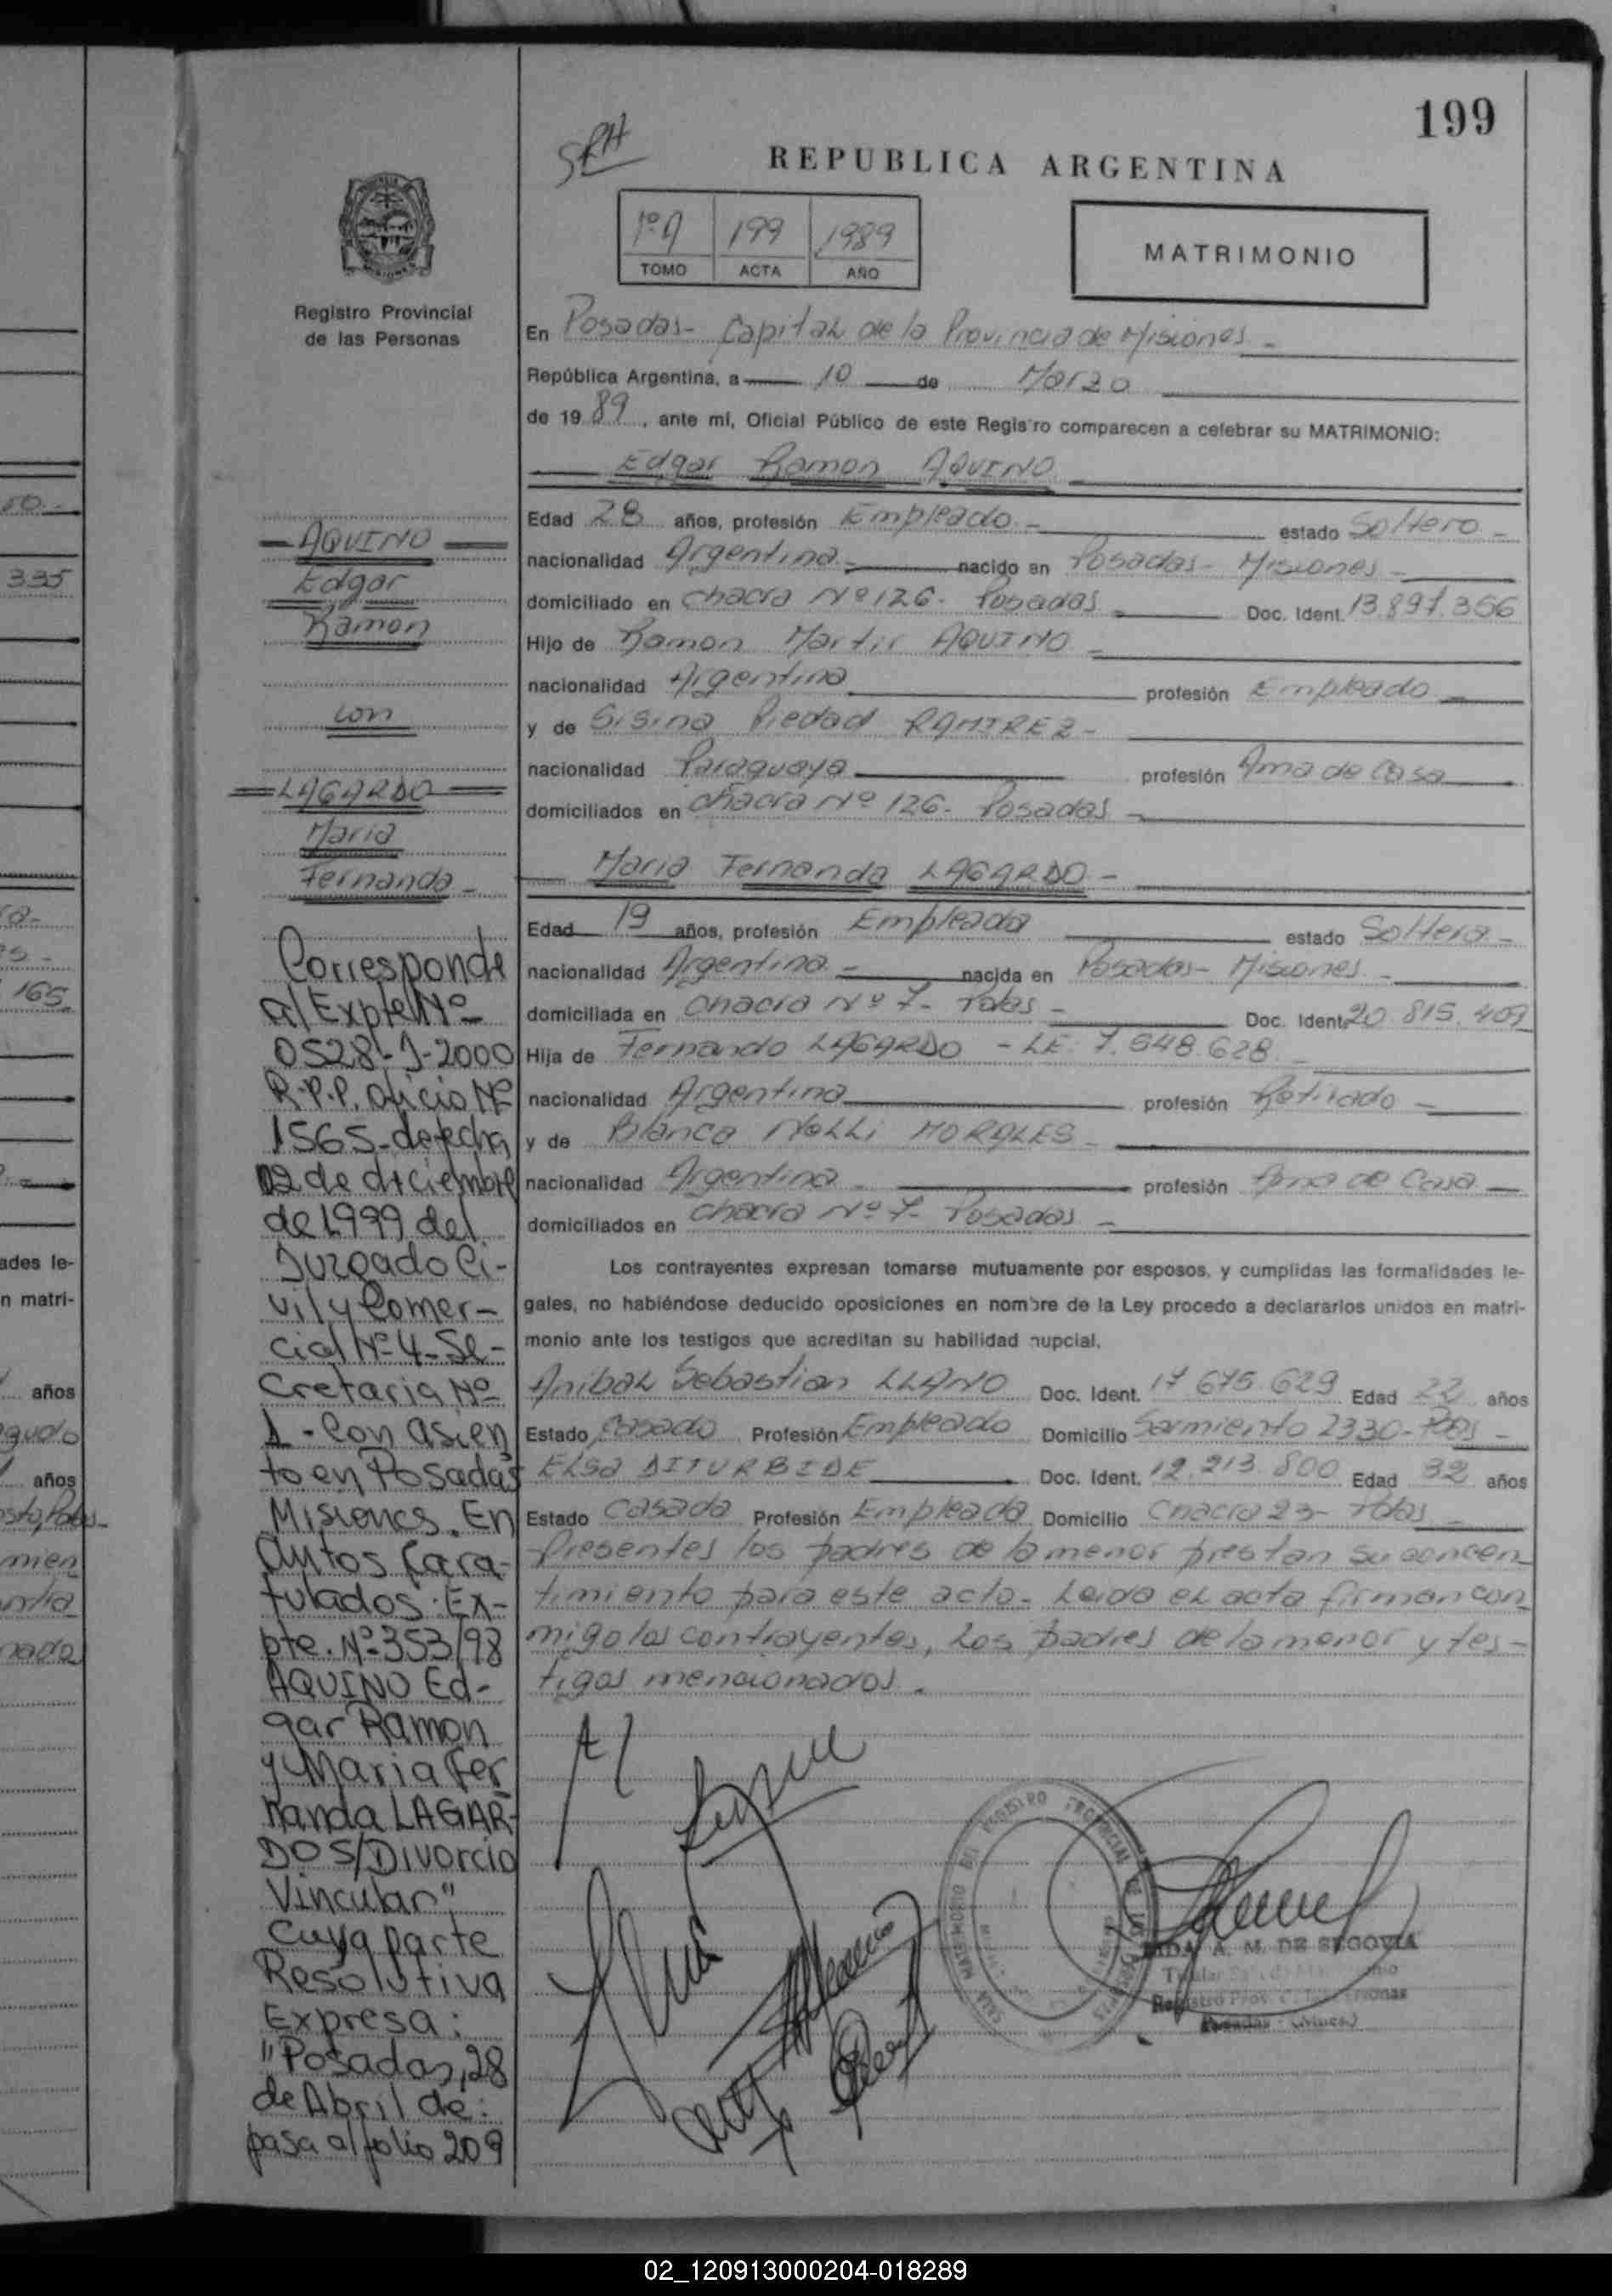 199
SRH
REPUBLICA ARGENTINA
1º A 199 1989
TOMO ACTA AÑO
MATRIMONIO
Registro Provincial
de las Personas
En Posadas- Capital de la Provincia de Misiones -
República Argentina, a 10 de Marzo
de 19 89, ante mí, Oficial Público de este Registro comparecen a celebrar su MATRIMONIO:
Edgar Ramon AQUINO
Edad 28 años, profesión Empleado - estado Soltero -
nacionalidad Argentina - nacido en Posadas - Misiones -
domiciliado en Chacra Nº 126 - Posadas - Doc. Ident. 13.897.356
Hijo de Ramon Martir AQUINO -
nacionalidad Argentina profesión Empleado -
y de Sisina Piedad RAMIREZ -
nacionalidad Paraguaya profesión Ama de Casa
domiciliados en Chacra Nº 126 - Posadas -
Maria Fernanda LAGARDO -
Edad 19 años, profesión Empleada estado Soltera -
nacionalidad Argentina - nacida en Posadas - Misiones -
domiciliada en Chacra Nº 7 - Pdas - Doc. Ident. 20.815.409
Hija de Fernando LAGARDO - LE. 7.548.628 -
nacionalidad Argentina profesión Retirado -
y de Blanca Nelli MORALES -
nacionalidad Argentina - profesión Ama de Casa
domiciliados en Chacra Nº 7 - Posadas -
Los contrayentes expresan tomarse mutuamente por esposos, y cumplidas las formalidades le-
gales, no habiéndose deducido oposiciones en nombre de la Ley procedo a declararlos unidos en matri-
monio ante los testigos que acreditan su habilidad nupcial.
Anibal Sebastian LLANO Doc. Ident. 17.675.629 Edad 22 años
Estado Casado Profesión Empleado Domicilio Sarmiento 2330 - Pdas -
ELSA DITURBIDE Doc. Ident. 12.213.800 Edad 32 años
Estado Casada Profesión Empleada Domicilio Chacra 23 - Pdas -
Presentes los padres de la menor prestan su concen
timiento para este acto - Leida el acta firman con
migo los contrayentes, los padres de la menor y tes-
tigos mencionados.
AQUINO
Edgar
Ramon
con
LAGARDO
Maria
Fernanda -
Corresponde
al Expte Nº
0528-J-2000
R.P.P. Oficio Nº
1565 - de fecha
02 de diciembre
de 1999 del
Juzgado Ci-
vil y Comer-
cial Nº 4 - Se-
cretaria Nº
1 - Con asien
to en Posadas
Misiones. En
autos Cara-
tulados: Ex-
pte. Nº 353/98
AQUINO Ed-
gar Ramon
y Maria Fer
nanda LAGAR-
DO S/ Divorcio
Vincular",
Cuya parte
Resolutiva
Expresa:
"Posadas, 28
de Abril de:
pasa al folio 209
A. M. DE SEGOVIA
50.-
335
ra-
165.
ades le-
n matri-
años
años
mien
02_120913000204-018289